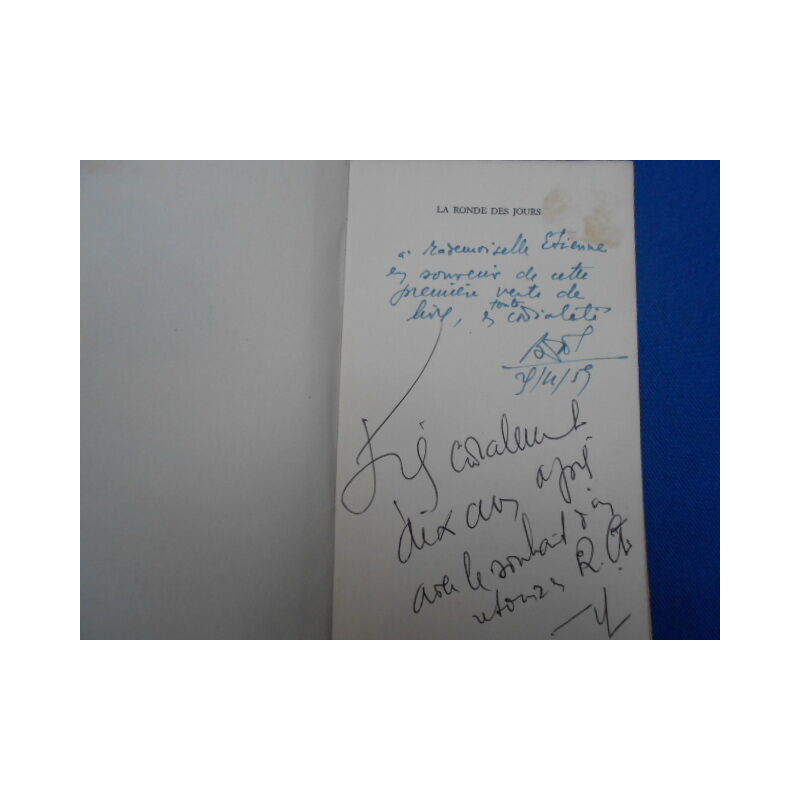 LA RONDE DES JOURS
à Mademoiselle Etienne
en souvenir de cette
première vente de
livre, en toute cordialité
Très cordialement
dix ans après
avec le souhait d'un